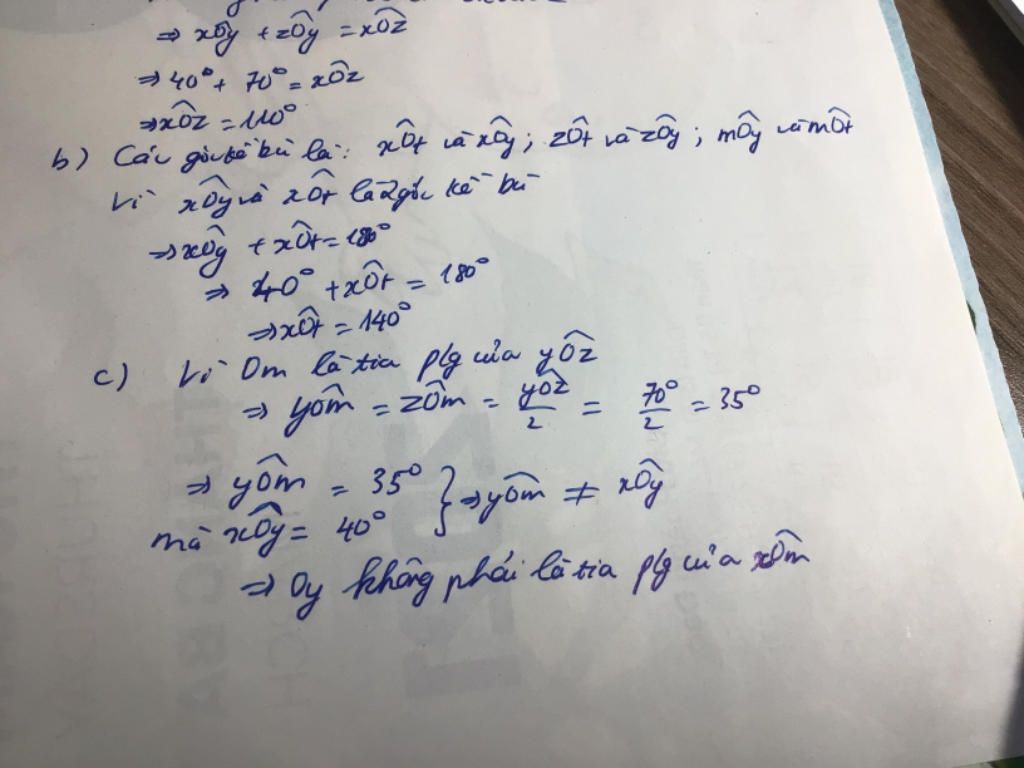 ⇒ xÔy + zÔy = xÔz
⇒ 40° + 70° = xÔz
⇒ xÔz = 110°
b) Các góc kề bù là: xÔt và xÔy; zÔt và zÔy; mÔy và mÔt
Vì xÔy và xÔt là 2 góc kề bù
⇒ xÔy + xÔt = 180°
⇒ 40° + xÔt = 180°
⇒ xÔt = 140°
c) Vì Om là tia p/g của yÔz
⇒ yÔm = zÔm = yÔz/2 = 70°/2 = 35°
⇒ yÔm = 35° } ⇒ yÔm ≠ xÔy
mà xÔy = 40°
⇒ Oy không phải là tia p/g của xÔm